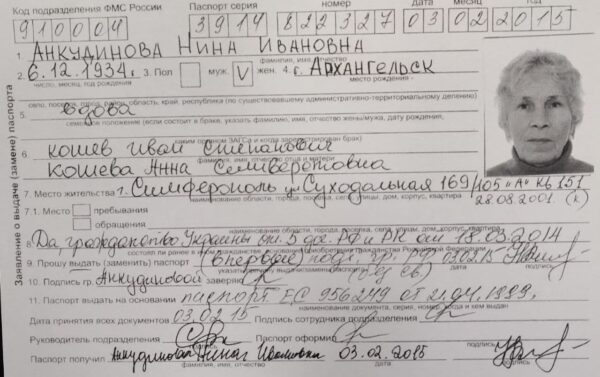 Код подразделения ФМС России Паспорт серия номер дата месяц год
910004 3914 822327 03 02 2015
1. Анкудинова Нина Ивановна
фамилия, имя, отчество
2. 6.12.1934г. 3. Пол муж. V жен. 4. г. Архангельск
число, месяц, год рождения место рождения -
село, поселок, город, район, область, край, республика (по существовавшему административно-территориальному делению)
5. вдова
семейное положение (если состоит в браке, указать фамилию, имя, отчество жены/мужа, дату рождения,
каким органом ЗАГСа и когда зарегистрирован брак)
6. Кошев Иван Степанович
фамилия, имя, отчество отца и матери
Кошева Анна Селиверстовна
7. Место жительства г. Симферополь ул Суходольная 169/105 "А" кв 151
наименование области, города, поселка, села, улицы, дом, корпус, квартира
7.1. Место пребывания 28.08.2001. (к)
обращения
наименование области, города, поселка, села, улицы, дом, корпус, квартира
8. Да, гражданство Украины ст. 5 дог. РФ и РК от 18.03.2014
состоял ли ранее в иностранном гражданстве
9. Прошу выдать (заменить) паспорт (впервые) гр. РФ 030215
10. Подпись гр. Анкудиновой заверяю
11. Паспорт выдать на основании паспорт ЕС 956249 от 21.04.1999.
наименование документа, серия, номер, когда и кем выдан
Дата принятия всех документов 03.02.15 Подпись сотрудника подразделения
Руководитель подразделения Паспорт оформил
подпись подпись
Паспорт получил Анкудинова Нина Ивановна 03.02.2015
фамилия, имя, отчество дата подпись
Заявление о выдаче (замене) паспорта